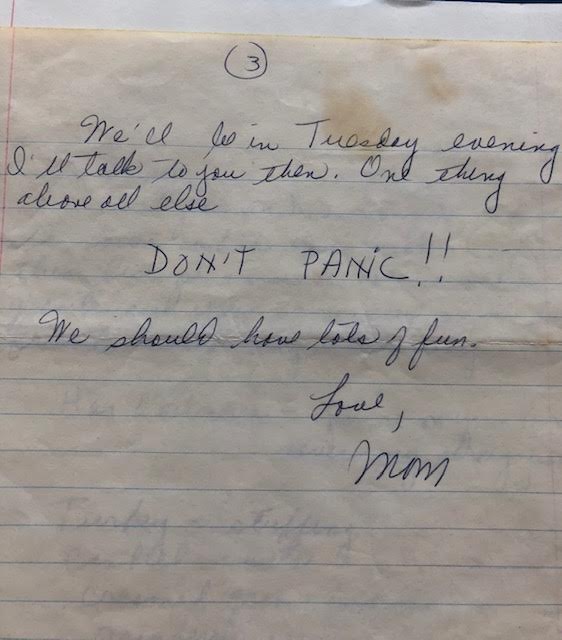 (3)
We'll be in Tuesday evening
I'll talk to you then. One thing
above all else
DON'T PANIC!!
We should have lots of fun.
Love,
Mom
Turkey & stuffing